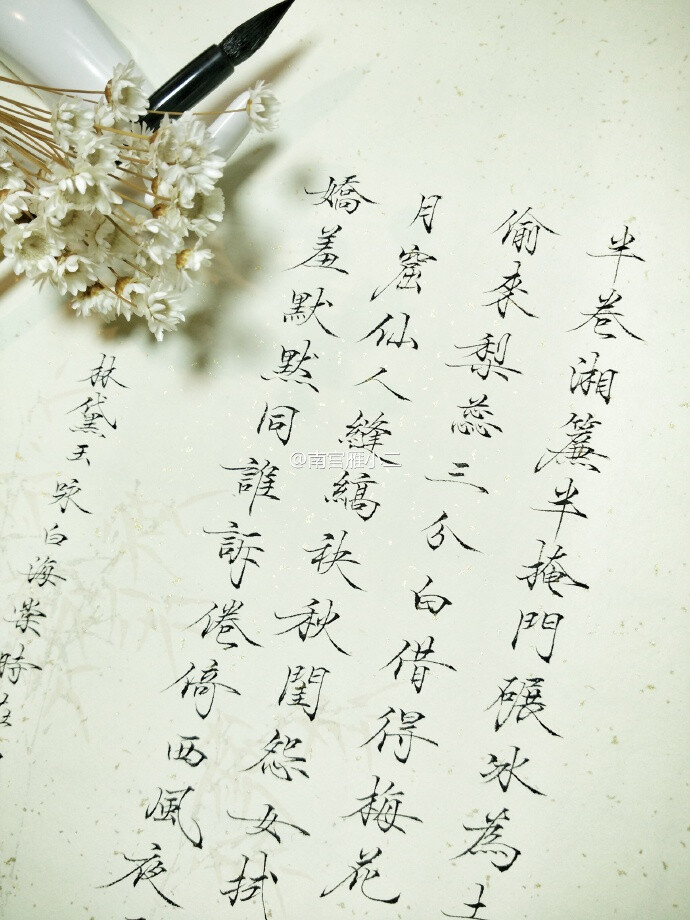 半卷湘簾半掩門碾冰為土
偷來梨蕊三分白借得梅花
月窟仙人縫縞袂秋閨怨女拭
嬌羞默默同誰訴倦倚西風夜
林黛玉咏白海棠時在